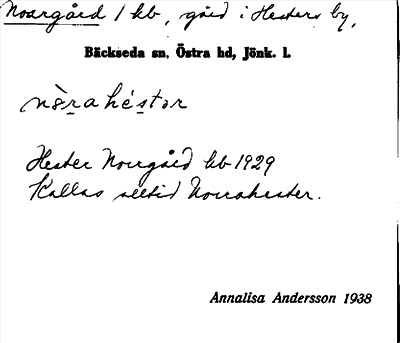 Norrgård 1 kb, gård i Hesters by,
Bäckseda sn, Östra hd, Jönk. l.
nòrahéstər
Hester Norrgård kb 1929
Kallas alltid Norrahester.
Annalisa Andersson 1938